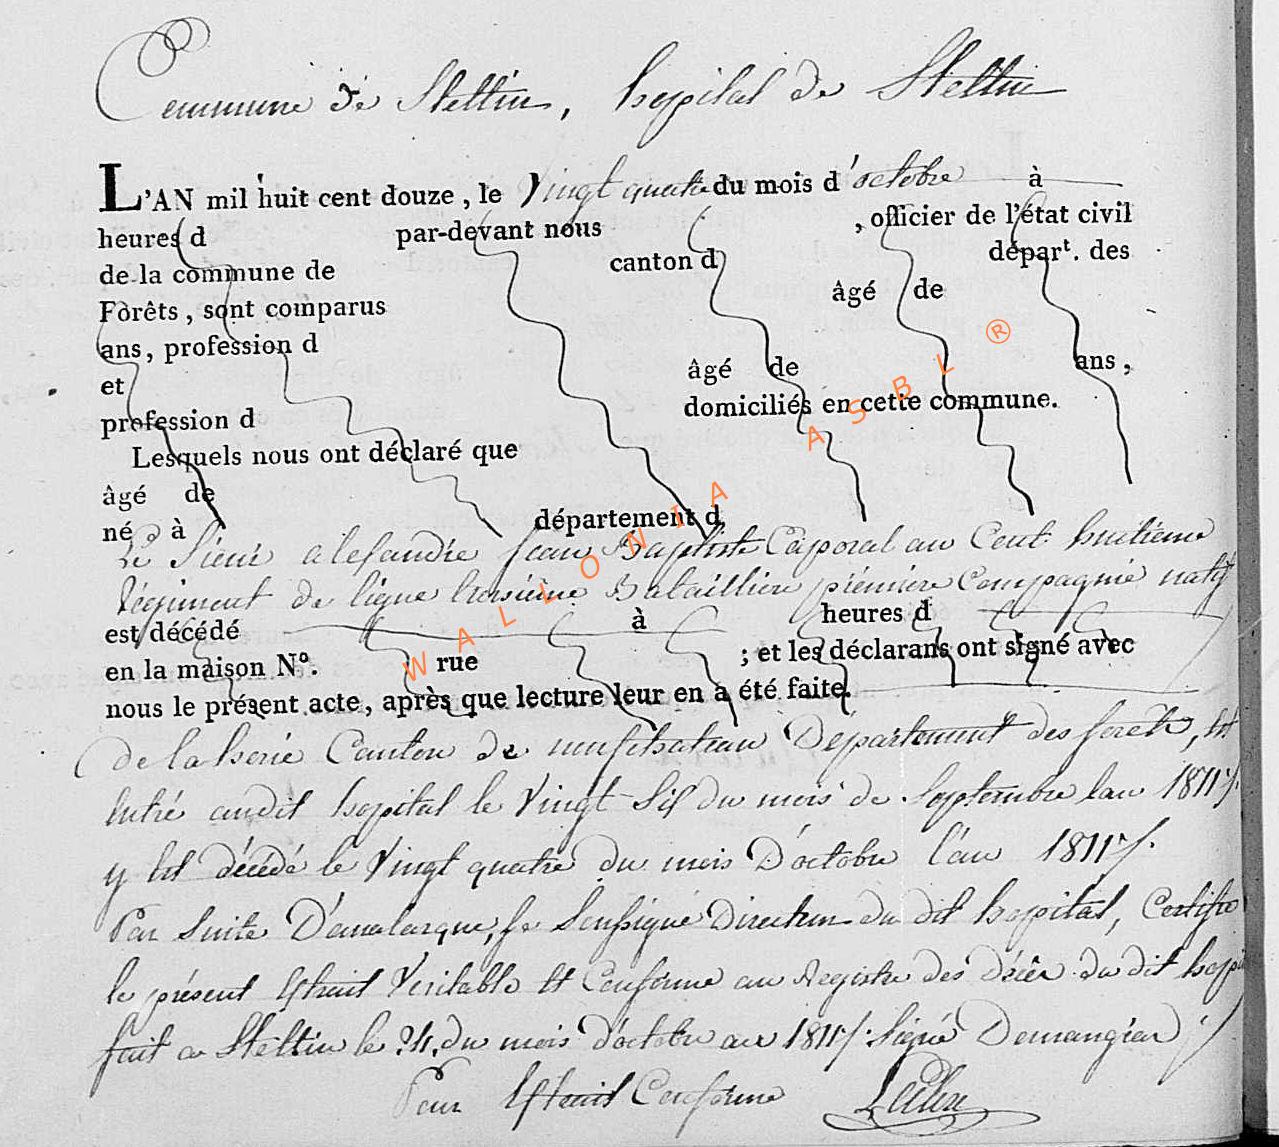 Commune de Stettin, hopital de Stettin
L'AN mil huit cent douze, le Vingt quatre du mois d'octobre à
heures d par-devant nous , officier de l'état civil
de la commune de canton d dépar<sup>t</sup>. des
Forêts, sont comparus âgé de
ans, profession d
et âgé de ans,
profession d domiciliés en cette commune.
Lesquels nous ont déclaré que
âgé de
né à département d
Le Sieur alexandre Jean Baptiste Caporal au Cent huitieme
Régiment de ligne troisième Bataillion première Compagnie natif
est décédé à heures d
en la maison N°. rue ; et les déclarans ont signé avec
nous le présent acte, après que lecture leur en a été faite.
de la Canton de neufchateau Département des forêts, Est
Entré audit hopital le Vingt Six du mois de Septembre lan 1811
y Est décédé le Vingt quatre du mois D'octobre l'an 1811
Par Suite Je Soussigné Directeur du dit hopital, Certifie
le présent Extrait Veritable et Conforme au Registre des Décès du dit
fait a Stettin le 24 du mois d'octobre an 1811 Signé Demangian
Pour Extrait Conforme
WALLONIA ASBL ®